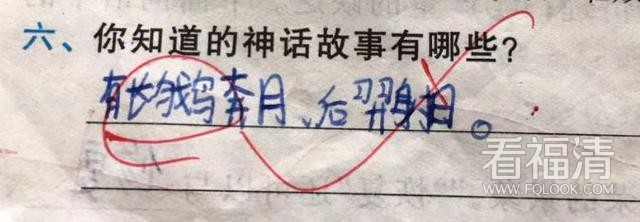 六、你知道的神话故事有哪些?
有长鹅奔月、后羿身扫。
看福清
WWW.FQLOOK.COM